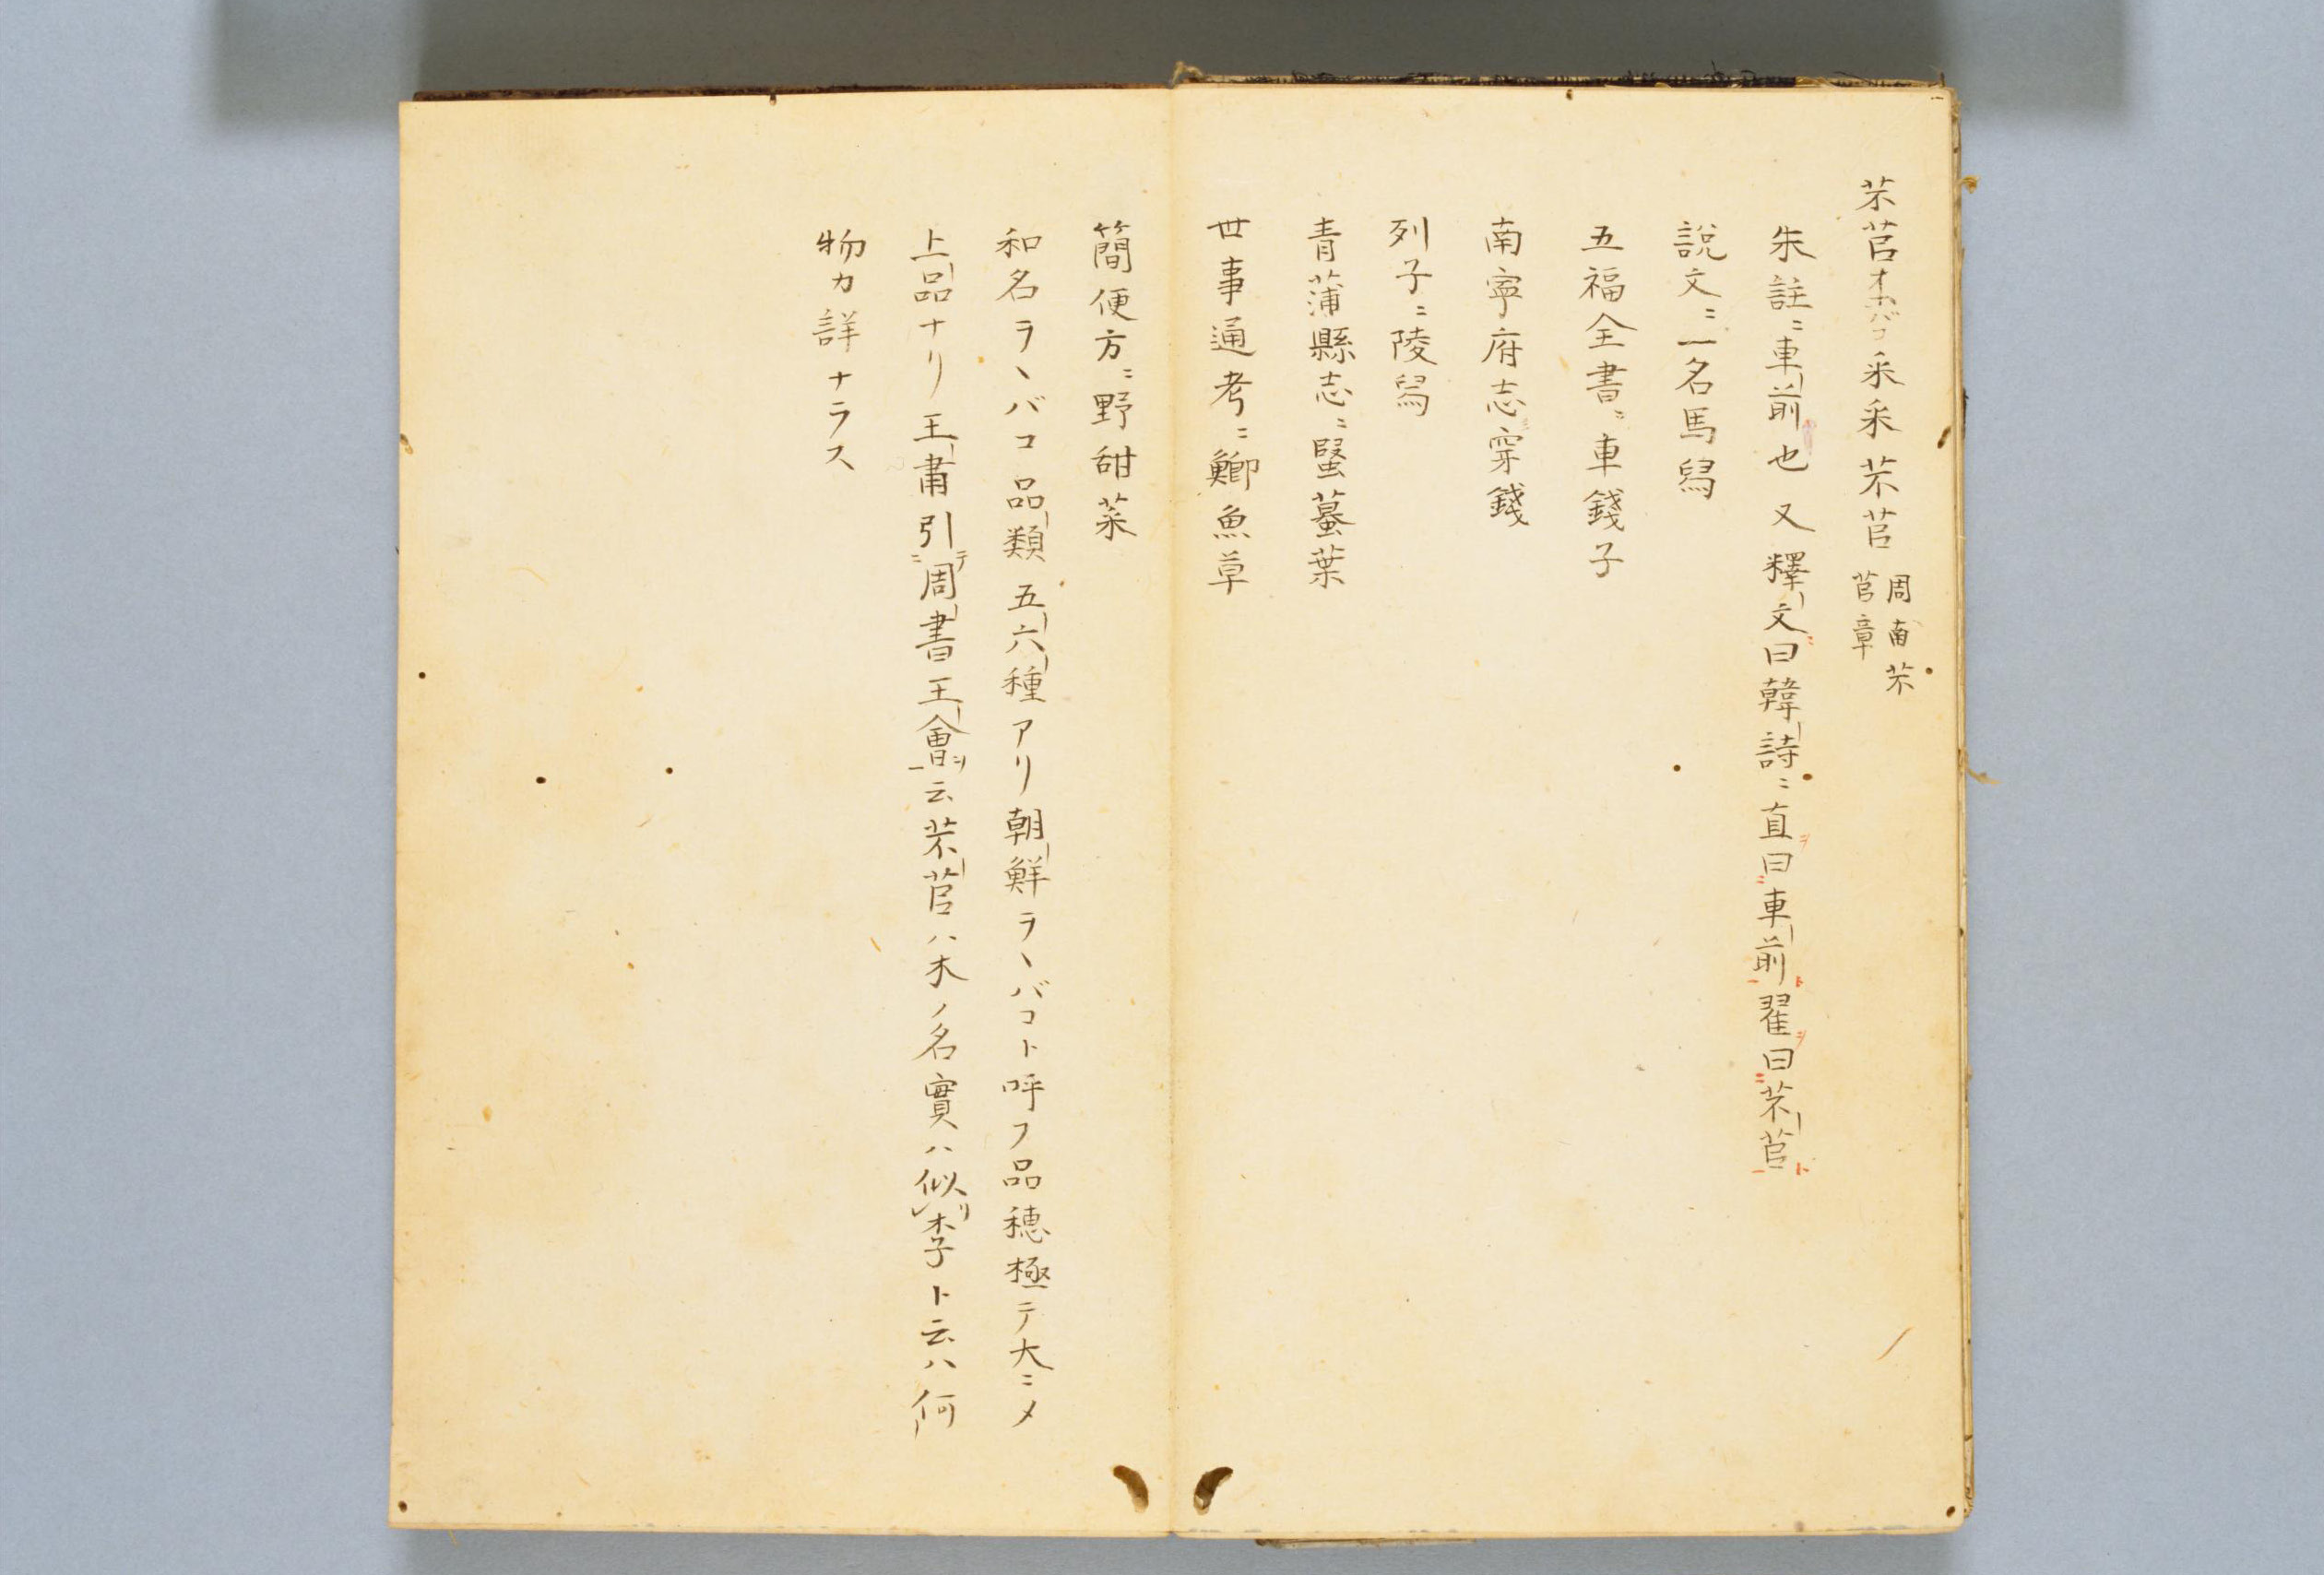 芣苢オホバコ 采采芣苢 周南芣苢章
朱註ニ車前也又釋文曰韓詩ニ直曰車前瞿曰芣苢
說文ニ一名馬舄
五福全書ニ車錢子
南寧府志穿錢
列子ニ陵舄
青蒲縣志ニ蝦蟇葉
世事通考ニ鯽魚草
簡便方ニ野甜菜
和名ヲヽバコ品類五六種アリ朝鮮ヲヽバコト呼フ品穗極テ大ニメ
上品ナリ王肅引テ周書王會ヲ云芣苢ハ木ノ名實ハ似リ李ト云ハ何
物カ詳ナラス